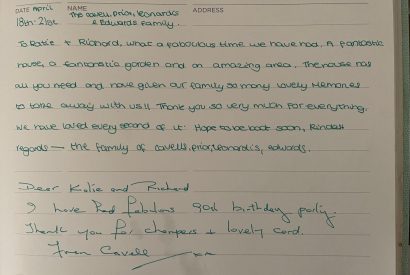 DATE April NAME ADDRESS
18th-21st The Cavell, prior, leonardis
& Edwards family.
To Katie + Richard, what a fabulous time we have had. A fantastic
house, a fantastic garden and an amazing area. The house has
all you need and have given our family so many lovely memories
to take away with us!! Thank you so very much for everything.
We have loved every second of it. Hope to be back soon, Kindest
regards — the family of cavells, prior, leonardis, edwards.
Dear Katie and Richard
I have had fabulous 90th birthday party.
Thank you for champers + lovely card.
Fran Cavell xx